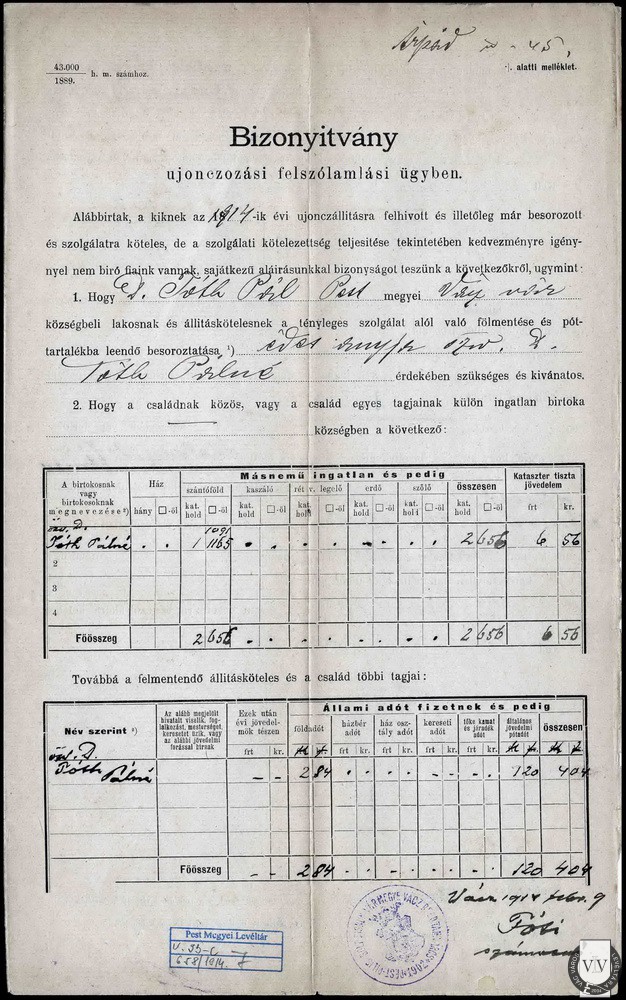 Árpád
43.000
1889. h. m. számhoz.
·/. alatti melléklet.
Bizonyitvány
ujonczozási felszólamlási ügyben.
Alábbirtak, a kiknek az 1914-ik évi ujonczállitásra felhivott és illetőleg már besorozott
és szolgálatra köteles, de a szolgálati kötelezettség teljesitése tekintetében kedvezményre igény-
nyel nem biró fiaink vannak, sajátkezű aláirásunkkal bizonyságot teszünk a következőkről, ugymint:
1. Hogy D. Tóth Pál Pest megyei Vácz város
községbeli lakosnak és állitáskötelesnek a tényleges szolgálat alól való fölmentése és pót-
tartalékba leendő besoroztatása, ¹) édes anyja özv. D.
Tóth Pálné érdekében szükséges és kivánatos.
2. Hogy a családnak közös, vagy a család egyes tagjainak külön ingatlan birtoka
községben a következő:
A birtokosnak vagy birtokosoknak megnevezése ²) Ház Másnemű ingatlan és pedig Kataszter tiszta jövedelem
szántóföld kaszáló rét v. legelő erdő szőlő összesen
hány □-öl kat. hold □-öl kat. hold □-öl kat. hold □-öl kat. hold □-öl kat. hold □-öl kat. hold □-öl frt kr.
özv. D. 1091
Tóth Pálné 1 1165 2 656 6 56
2
3
4
Főösszeg 2 656 2 656 6 56
Továbbá a felmentendő állitásköteles és a család többi tagjai:
Név szerint ³) Az alább megjelölt hivatalt viselik, foglalkozást, mesterséget, keresetet űzik, vagy az alábbi jövedelmi forással birnak Ezek után évi jövedelmök tészen Állami adót fizetnek és pedig
földadót házbér adót ház osztály adót kereseti adót tőke kamat és járadék adót általános jövedelmi pótadót összesen
frt kr. frt kr. frt kr. frt kr. frt kr.
özv. D.
Tóth Pálné – – 2 84 1 20 4 04
Főösszeg 2 84 1 20 4 04
Vácz 1914 febr. 9
Tóti
Pest Megyei Levéltár
V. 33-c
658/1914
VÁC VÁROS LEVÉLTÁRA